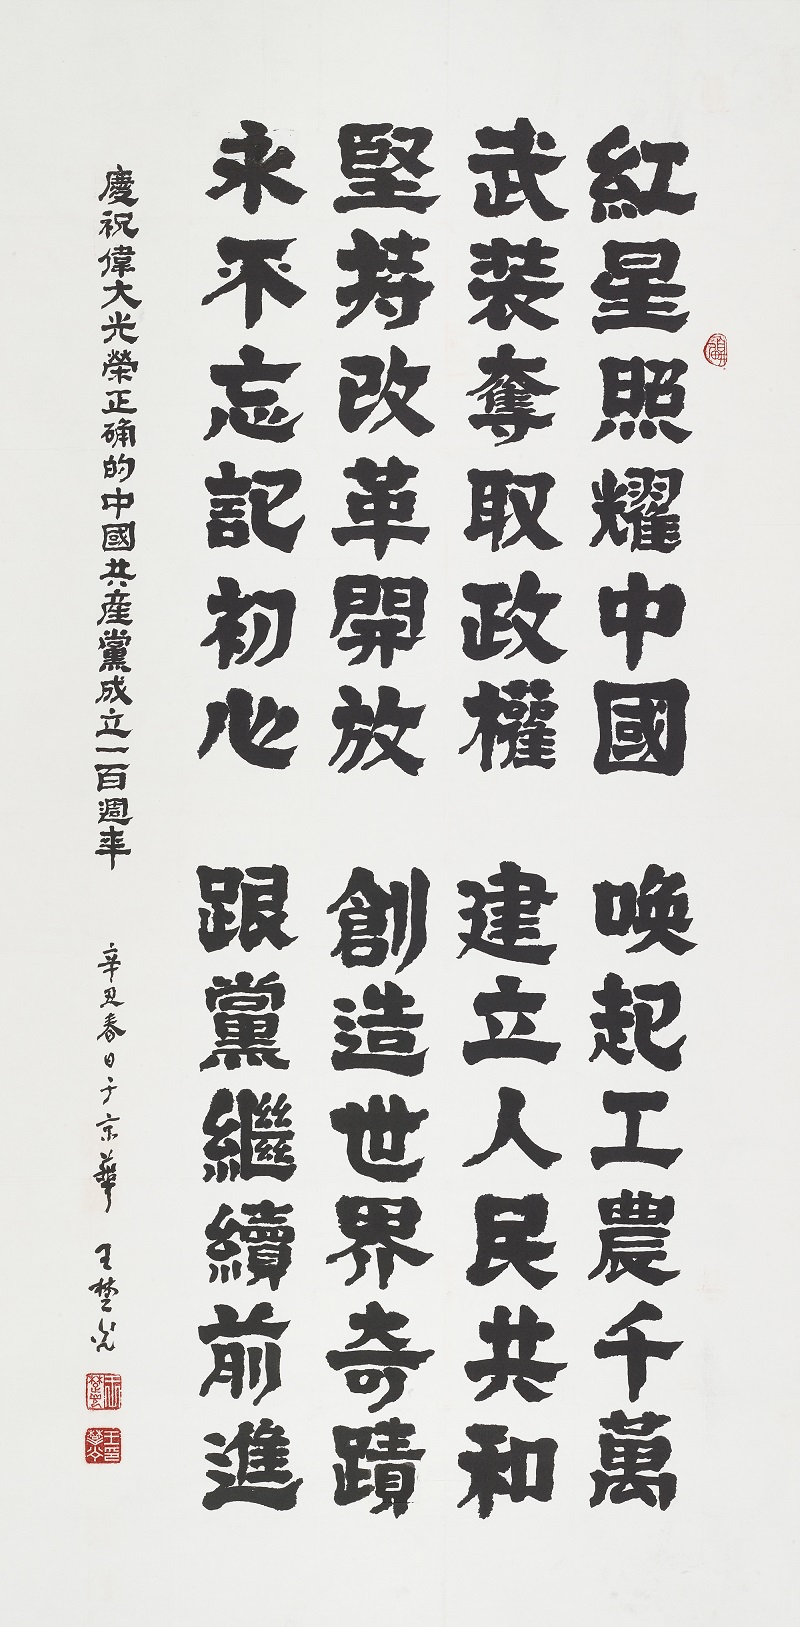 紅星照耀中國 喚起工農千萬
武裝奪取政權 建立人民共和
堅持改革開放 創造世界奇蹟
永不忘記初心 跟黨繼續前進
慶祝偉大光榮正确的中國共產黨成立一百週年 辛丑春日于京華 王楚光